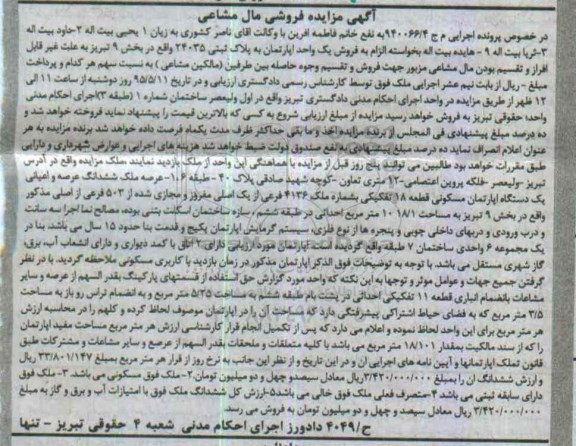 آگهی مزایده فروشی مال مشاعی
در خصوص پرونده اجرایی م ج ۹۴۰۰۶۶/۴ به نفع خانم فاطمه آفرین با وکالت آقای ناصر کشوری به زیان ۱ یحیی بیت اله ۲-حاود بیت اله
۳-ثریا بیت اله ۹ - هایده بیت اله بخواسته الزام به فروش یک واحد آپارتمان به پلاک ثبتی ۲۴۰۳۵ واقع در بخش ۹ تبریز به علت غیر قابل
افراز و تقسیم بودن مال مشاعی مزبور جهت فروش و تقسیم وجوه حاصله بین طرفین (مالکین مشاعی) به نسبت سهم هر کدام و پرداخت
مبلغ - ریال از بابت نیم عشر اجرایی ملک فوق توسط کارشناس رسمی دادگستری ارزیابی و در تاریخ ۹۵/۵/۱۱ روز دوشنبه از ساعت ۱۱ الی
۱۲ ظهر از طریق مزایده در واحد اجرای احکام مدنی دادگستری تبریز واقع در اول ولیعصر ساختمان شماره ۱ (طبقه ۳)اجرای احکام مدنی
واحد؛ حقوقی تبریز به فروش خواهد رسید مزایده از مبلغ ارزیابی شروع به کسی که بالاترین قیمت را پیشنهاد نماید فروخته خواهد شد و
ده درصد مبلغ پیشنهادی فی المجلس از برنده مزایده اخذ و ما بقی حداکثر ظرف مدت یکماه فرصت داده خواهد شد برنده مزایده به هر
عنوان اعلام انصراف نماید ده درصد مبلغ پیشنهادی به نفع صندوق دولت ضبط خواهد شد هزینه های اجرایی و عوارض شهرداری و دارایی
طبق مقررات خواهد بود طالبین می توانند پنج روز قبل از مزایده با هماهنگی این واحد از ملک بازدید نمایند .ملک مزایده واقع در آدرس
تبریز -ولیعصر -فلکه پروین اعتصامی-۱۲ متری تعاون -کوچه شهید صادقی پلاک ۴۰ - طبقه ۶-۱.عرصه ملک ششدانگ عرصه و اعیانی
یک دستگاه آپارتمان مسکونی قطعه ۱۸ تفکیکی بشماره ملک ۴۱۳۶ فرعی از یک اصلی مفروز و مجازی شده از ۵۰۳ فرعی از اصلی مذکور
واقع در بخش ۹ تبریز به مساحت ۱۸/۱ ۱۰ متر مربع احداثی در طبقه ششم ، سازه ساختمان اسکلت بتنی بوده، مصالح نما اجرا سه سانت
و درب ورودی و دربهای داخلی چوبی و پنجره ها از نوع فلزی، سیستم گرمایش آپارتمان پکیج و قدمت بنا حدود ۱۵ سال می باشد. بنا در
یک مجموعه ۶ واحدی ساختمان ۷ طبقه واقع گردیده است آپارتمان مورد ارزیابی دارای ۲ اتاق با کمد دیواری و دارای انشعاب آب، برق،
گاز شهری مستقل می باشد. با توجه به توضیحات فوق الذکر آپارتمان مذکور در زمان بازدید با کاربری مسکونی ملاحظه گردید. با در نظر
گرفتن جمیع جهات و عوامل موثر و توجها به این نکته که واحد مورد گزارش حق استفاده از قسمتهای پارکینگ بقدر السهم از عرصه و سایر
مشاعات بانضمام انباری قطعه ۱۱ تفکیکی احداثی در پشت بام طبقه ششم به مساحت ۵/۲۵ متر مربع و به انضمام تراس رو باز به مساحت
۳/۵ متر مربع که به فضای حیاط اشتراکی پیشرفتگی دارد که مساحت آن را در آپارتمان موصوف لحاظ کرده و کلهم را در محاسبه ارزش
هر متر مربع برای این واحد لحاظ نموده و اعلام می دارد که پس از تکمیل انجام قرار کارشناسی ارزش هر متر مربع مساحت مفید آپارتمان
را که از سند مالکیت بمقدار ۱۸/۱۰۱ متر مربع می باشد با کلیه متعلقات و ملحقات بقدر السهم از عرصع و سایر مشاعات و مشترکات طبق
قانون تملک آپارتمانها و آیین نامه های اجرایی آن و در این تاریخ و از نظر این جانب به نرخ روز از قرار هر متر مربع بمبلغ ۳۳/۸۰۱/۱۴۷ ریال
و ارزش ششدانگ آن را بمبلغ ۳/۴۲۰/۰۰۰/۰۰۰ ریال معادل سیصدو چهل و دو میلیون تومان.۲-ملک فوق مسکونی می باشد. ۳- ملک فوق
دارای سابقه ثبتی می باشد ۴-متصرف فعلی ملک فوق خالی می باشد۵-ارزش کل ششدانگ ملک فوق با امتیازات آب و برق و گاز به مبلغ
۳/۴۲۰/۰۰۰/۰۰۰ ریال معادل سیصد و چهل و دو میلیون تومان به فروش می رسد.
ح/۴۰۴۹ دادورز اجرای احکام مدنی شعبه ۴ حقوقی تبریز - تنها